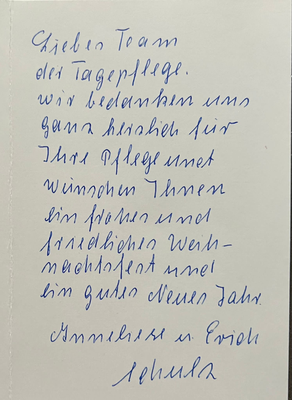 Liebes Team
der Tagepflege.
wir bedanken uns
ganz herslich für
Ihre Pflege und
wünschen Ihnen
ein frohes und
friedliches Weih-
nachtsfest und
ein gutes Neues Jahr.
Anneliese u. Erich
Schulz